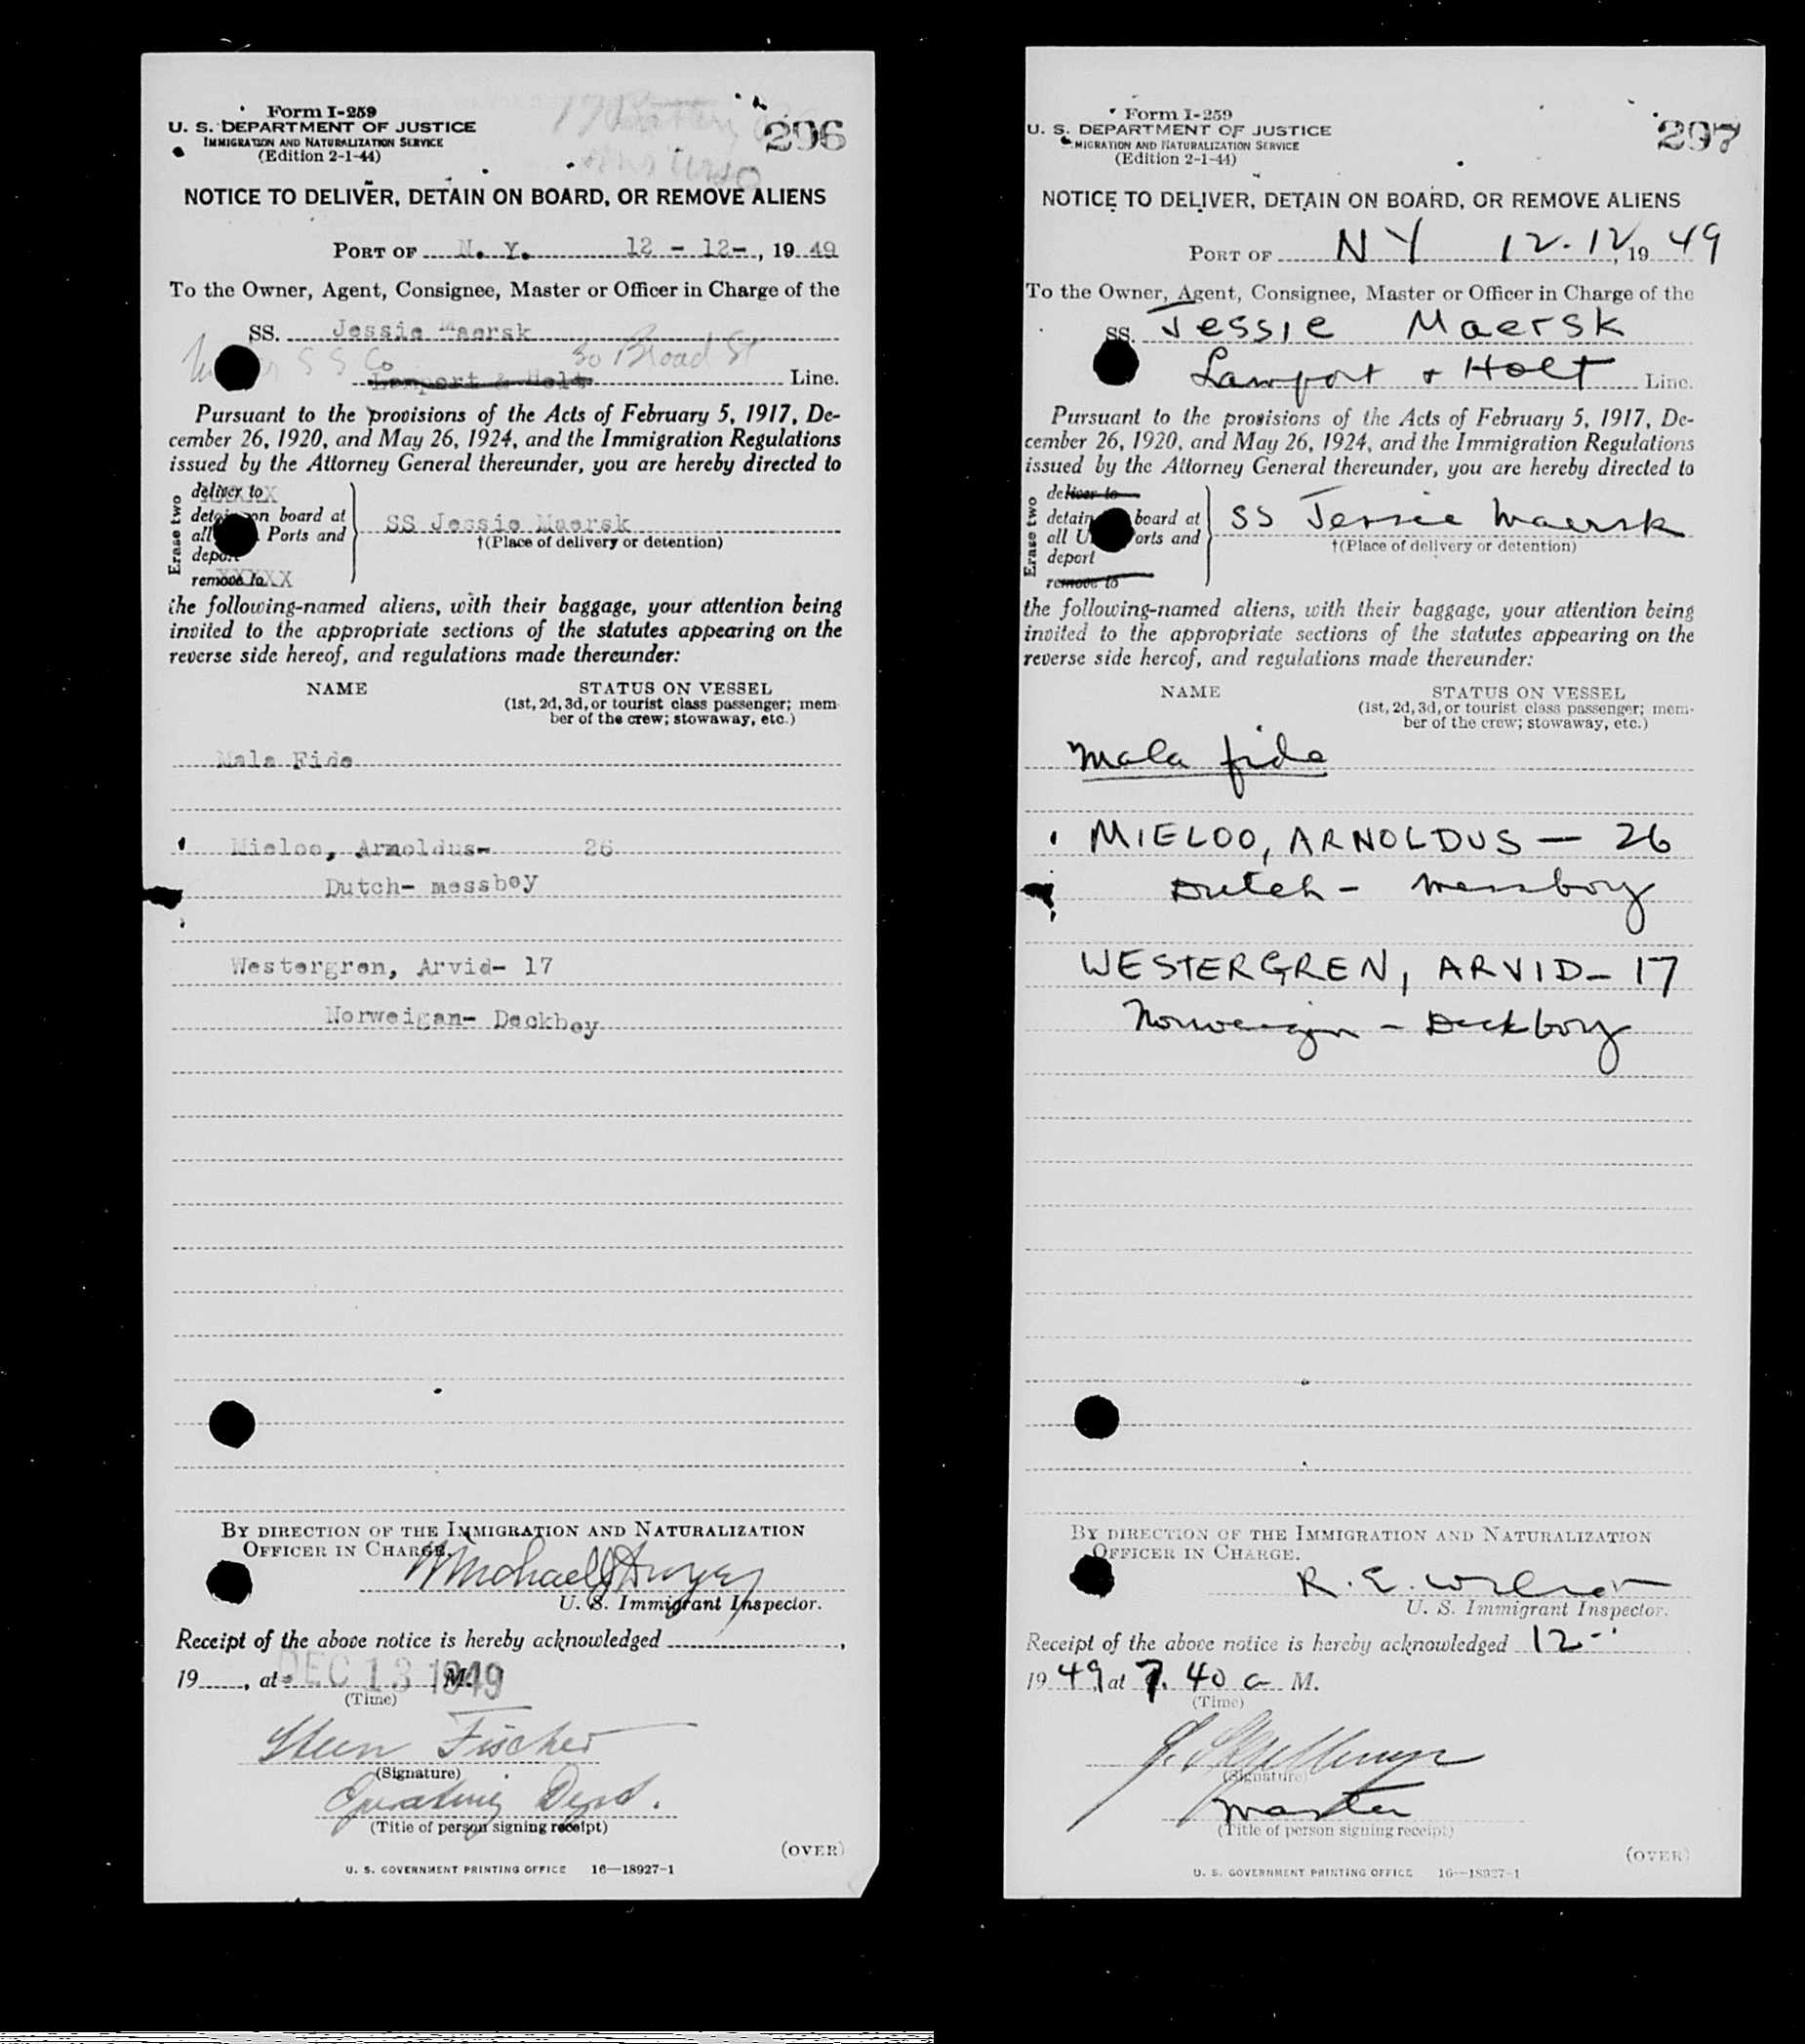 Form I-259
U. S. DEPARTMENT OF JUSTICE
IMMIGRATION AND NATURALIZATION SERVICE
(Edition 2-1-44)
296
NOTICE TO DELIVER, DETAIN ON BOARD, OR REMOVE ALIENS
PORT OF N. Y. 12 - 12-, 19 49
To the Owner, Agent, Consignee, Master or Officer in Charge of the
SS. Jessie Maersk
S S Co 30 Broad St
Lamport & Holt Line.
Pursuant to the provisions of the Acts of February 5, 1917, De-
cember 26, 1920, and May 26, 1924, and the Immigration Regulations
issued by the Attorney General thereunder, you are hereby directed to
Erase two
deliver to
detain on board at
all Ports and
deport
remove to
SS Jessie Maersk
†(Place of delivery or detention)
the following-named aliens, with their baggage, your attention being
invited to the appropriate sections of the statutes appearing on the
reverse side hereof, and regulations made thereunder:
NAME STATUS ON VESSEL
(1st, 2d, 3d, or tourist class passenger; mem-
ber of the crew; stowaway, etc.)
Mala Fide
Mieloo, Arnoldus- 26
Dutch- messboy
Westergren, Arvid- 17
Norweigan- Deckboy
BY DIRECTION OF THE IMMIGRATION AND NATURALIZATION
OFFICER IN CHARGE.
U. S. Immigrant Inspector.
Receipt of the above notice is hereby acknowledged
19 , at DEC 13 1949 M.
(Time)
Steen Fischer
(Signature)
Operating Dept.
(Title of person signing receipt)
(OVER)
U. S. GOVERNMENT PRINTING OFFICE 16—18927-1
Form I-259
U. S. DEPARTMENT OF JUSTICE
MIGRATION AND NATURALIZATION SERVICE
(Edition 2-1-44)
297
NOTICE TO DELIVER, DETAIN ON BOARD, OR REMOVE ALIENS
PORT OF NY 12.12, 19 49
To the Owner, Agent, Consignee, Master or Officer in Charge of the
SS. Jessie Maersk
Lamport & Holt Line.
Pursuant to the provisions of the Acts of February 5, 1917, De-
cember 26, 1920, and May 26, 1924, and the Immigration Regulations
issued by the Attorney General thereunder, you are hereby directed to
Erase two
deliver to
detain board at
all U orts and
deport
remove to
SS Jessie Maersk
†(Place of delivery or detention)
the following-named aliens, with their baggage, your attention being
invited to the appropriate sections of the statutes appearing on the
reverse side hereof, and regulations made thereunder:
NAME STATUS ON VESSEL
(1st, 2d, 3d, or tourist class passenger; mem-
ber of the crew; stowaway, etc.)
Mala fide
MIELOO, ARNOLDUS — 26
Dutch - Messboy
WESTERGREN, ARVID - 17
Norweigin - Deckboy
BY DIRECTION OF THE IMMIGRATION AND NATURALIZATION
OFFICER IN CHARGE.
R. E. Wilson
U. S. Immigrant Inspector.
Receipt of the above notice is hereby acknowledged 12-
19 49, at 7.40 a M.
(Time)
(Signature)
Master
(Title of person signing receipt)
(OVER)
U. S. GOVERNMENT PRINTING OFFICE 16—18927-1